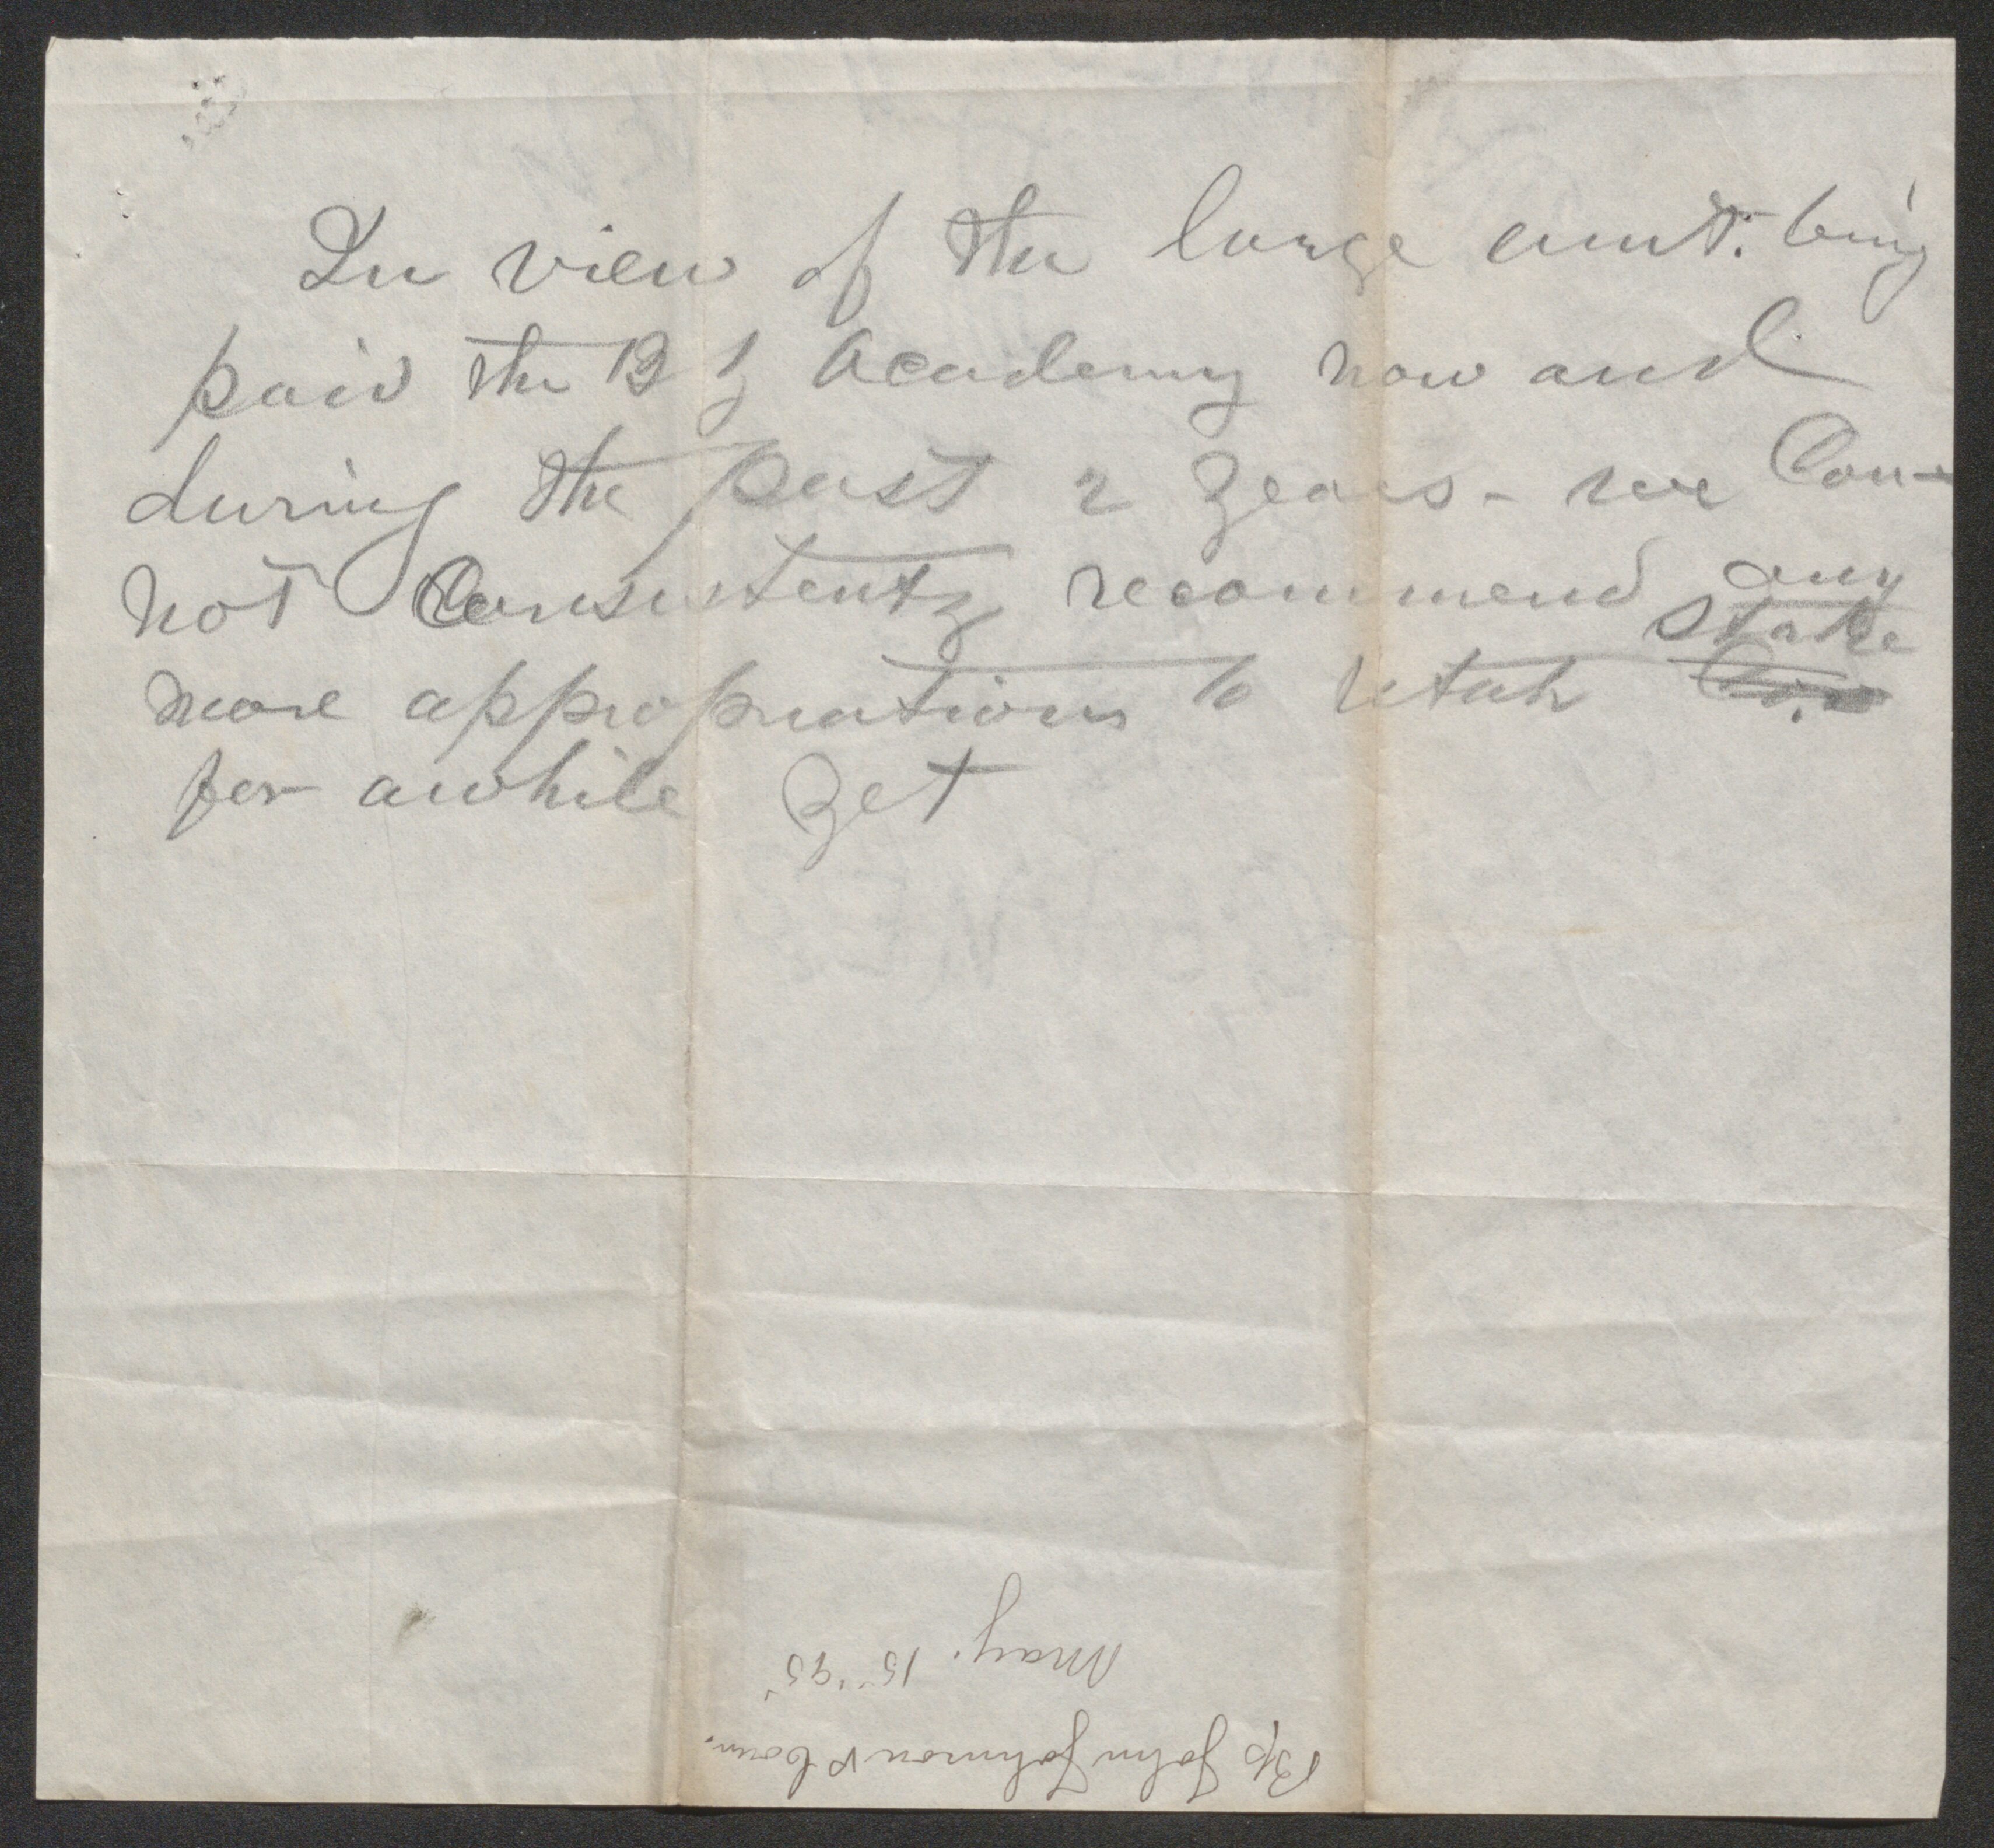 In view of the large amt. being
paid the B Y Academy now and
during the past 2 years - we Can-
not Consistently recommend any
more appropriations to Utah Stake
for awhile yet
Bp John Johnson & Coun.
May. 15" '95